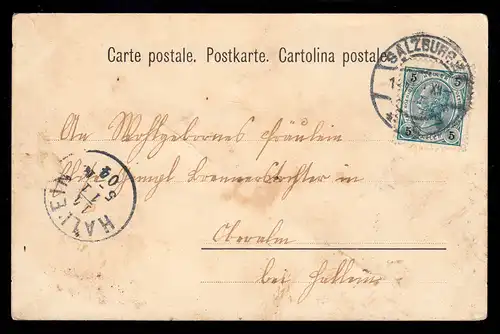 Carte postale. Postkarte. Cartolina postale.
SALZBURG
5 5
5 5
An Wohlgebornes Fräulein
in
HALLEIN
11
5
04
Oberalm
bei Hallein